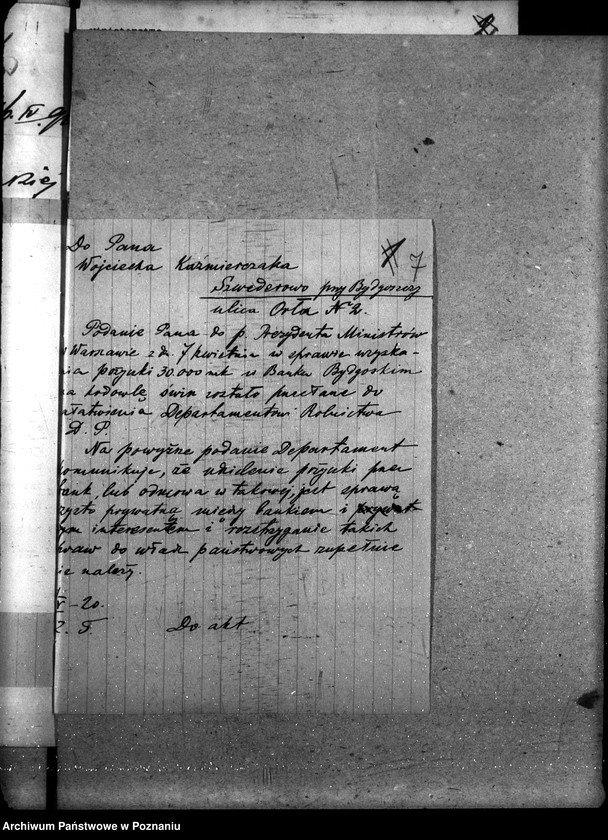 7
Do Pana
Wojciecha Kaźmierczaka
Szwederowo przy Bydgoszczy
ulica Orła № 2.
Podanie Pana do p. Prezydenta Ministrów
w Warszawie z dn. 7 kwietnia w sprawie uzyska-
nia pożyczki 30.000 mk u Banku Bydgoskim
na hodowlę świn zostało przesłane do
załatwienia Departamentowi Rolnictwa
D. P.
Na powyższe podanie Departament
komunikuje, że udzielenie pożyczki przez
bank, lub odmowa w takowej, jest sprawą
czysto prywatną między bankiem i
tym interesentem i rozstrzyganie takich
spraw do władz państwowych zupełnie
nie należy.
20.
Do akt
Archiwum Państwowe w Poznaniu